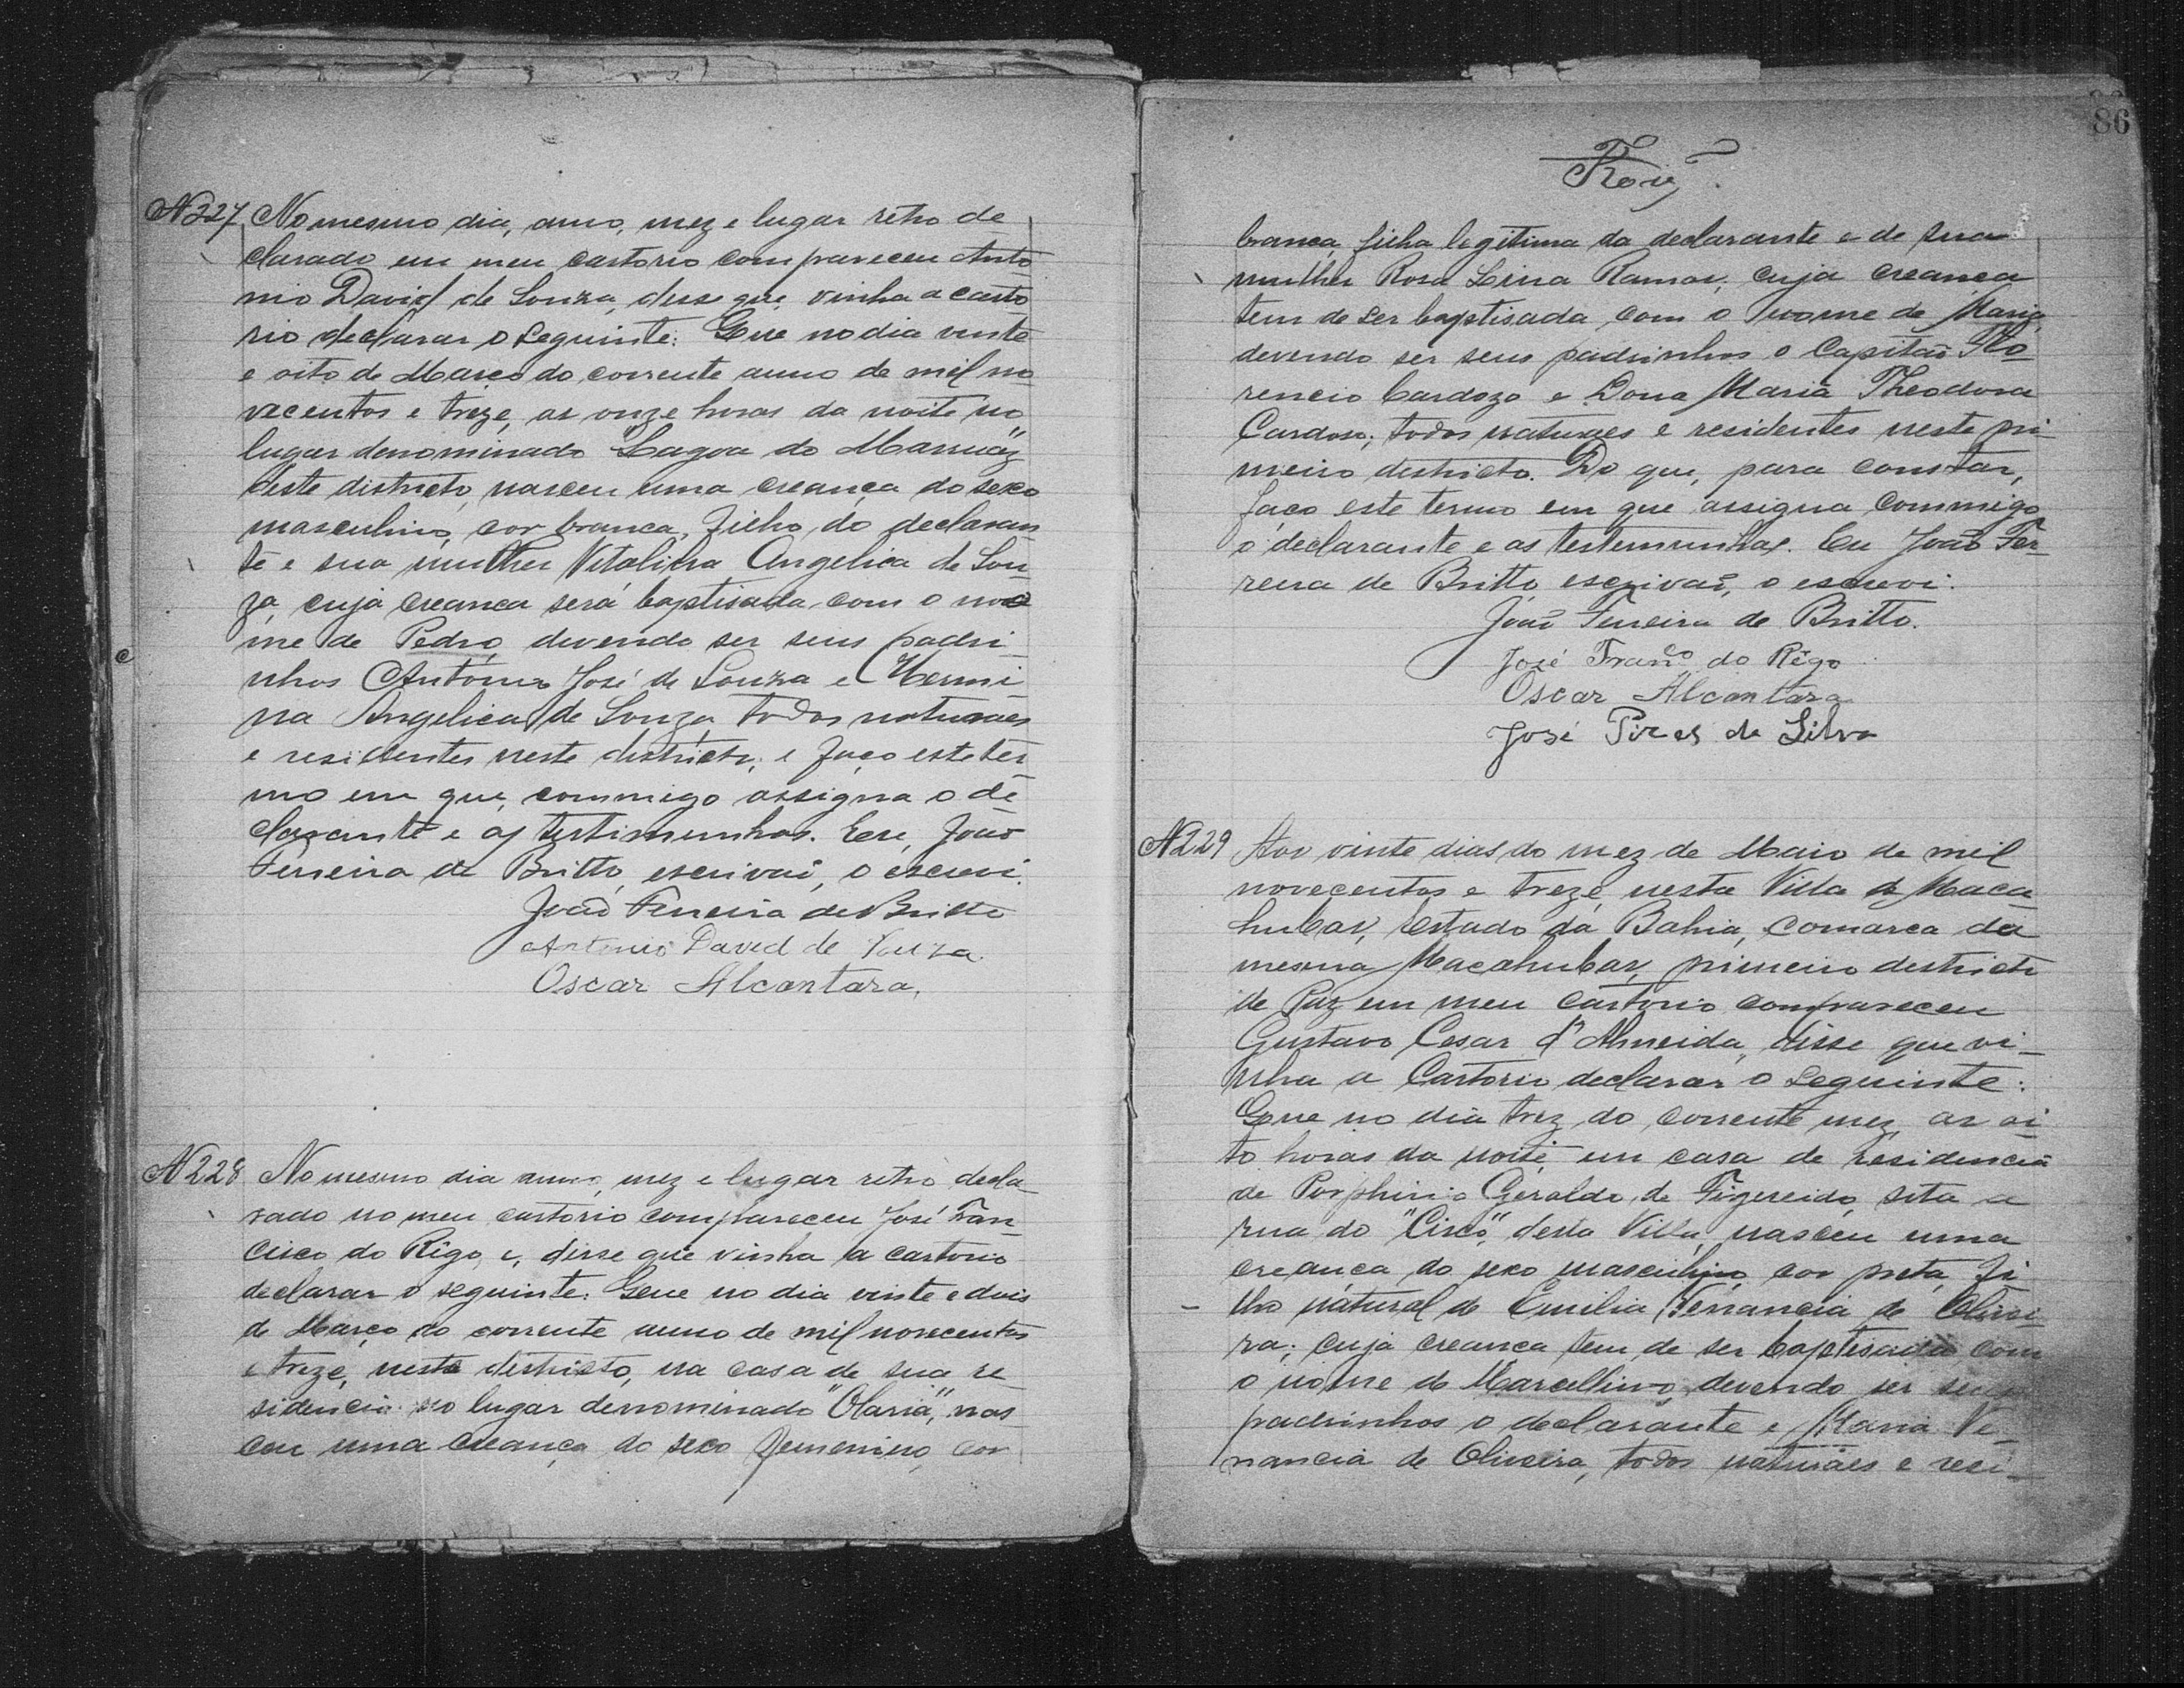 N 227 No mesmo dia, anno, mez e lugar retro de
clarado em meu cartorio compareceu Anto
nio David de Souza, disse que vinha a carto
rio declarar o seguinte: Que no dia vinte
e oito de Março do corrente anno de mil no
vecentos e treze, as onze horas da noite no
lugar denominado "Lagoa do
deste districto, nasceu uma creança do sexo
masculino, cor branca, filho do declaran
te e sua mulher Vitalina Angelica de Sou
za, cuja creança será baptisada com o no
me de Pedro, devendo ser seus padri
nhos Antonio José de Souza e Hermi
na Angelica de Souza, todos naturaes
e residentes neste districto; e faço este ter
mo em que commigo assigna o de
clarante e as testimunhas. Eu, João
Ferreira de Britto, escrivaõ, o escrevi.
João Ferreira de Britto
Antonio David de Souza.
Oscar Alcantara.
N 228 No mesmo dia anno, mez e lugar retro decla
rado no meu cartorio compareceu José Fran
cisco do Rêgo e, disse que vinha a cartorio
declarar o seguinte: Que no dia vinte e dois
de Março do corrente anno de mil novecentos
e treze, neste districto, na casa de sua re
sidencia no lugar denominado "Olaria", nas
ceu uma creança do sexo femenino, cor
86
branca, filha legitima do declarante e de sua
mulher Rosa Lina Ramos, cuja creança
tem de ser baptisada com o nome de Maria,
devendo ser seus padrinhos o Capitão Flo
rencio Cardozo e Dona Maria Theodora
Cardoso; todos naturaes e residentes neste pri
meiro districto. Do que, para constar,
faço este termo em que assigna commigo
o declarante e as testemunhas. Eu João Fer
reira de Britto, escrivaõ, o escrevi.
João Ferreira de Britto.
José Franco do Rêgo
Oscar Alcantara
José Pires da Silva
N 229 Aos vinte dias do mez de Maio de mil
novecentos e treze, nesta Villa de Maca
hubas, Estado da Bahia, comarca da
mesma Macahubas, primeiro districto
de Paz em meu cartorio compareceu
Gustavo Cesar d'Almeida, disse que vi-
nha a Cartorio declarar o seguinte:
Que no dia trez do corrente mez, as oi
to horas da noite em casa de residencia
de Porphirio Geraldo de Figereido, sita a
rua do "Cisco", desta Villa, nasceu uma
creança do sexo masculino, cor preta, fi
lho natural de Emilia Venancia de Olivei
ra; cuja creança tem de ser baptisada com
o nome de Marcellino, devendo ser seus
padrinhos o declarante e Maria Ve-
nancia de Oliveira, todos naturaes e resi-